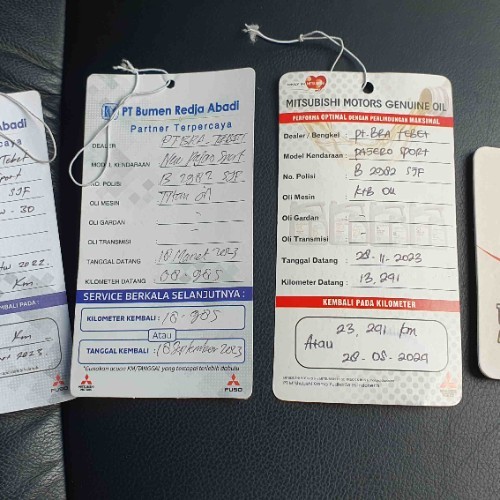 Abadi
Tebet
Sport
SJF
2022
Km
MBALI PADA :
Km
2023
PT Bumen Redja Abadi
Partner Terpercaya
DEALER : PT BRA TEBET
MODEL KENDARAAN : New Pajero Sport
NO. POLISI : B 2982 SJF
OLI MESIN
OLI GARDAN : -
OLI TRANSMISI : -
TANGGAL DATANG : 18 Maret 2023
KILOMETER DATANG : 08.985
SERVICE BERKALA SELANJUTNYA :
KILOMETER KEMBALI : 18.985
Atau
TANGGAL KEMBALI : 18 September 2023
FUSO
MITSUBISHI MOTORS GENUINE OIL
PERFORMA OPTIMAL DENGAN PERLINDUNGAN MAKSIMAL
Dealer / Bengkel : PT. BRA TEBET
Model Kendaraan : PAJERO SPORT
No. Polisi : B 2982 SJF
Oli Mesin : KTB OLI
Oli Gardan : -
Oli Transmisi : -
Tanggal Datang : 28-11-2023
Kilometer Datang : 13,291
KEMBALI PADA KILOMETER
23,291 km
Atau
28-05-2024
FUSO